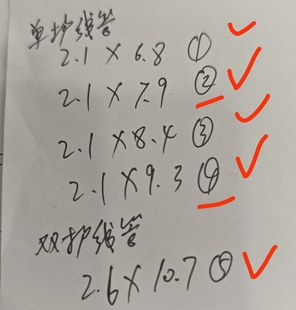 单护线管
2.1×6.8 ①
2.1×7.9 ②
2.1×8.4 ③
2.1×9.3 ④
双护线管
2.6×10.7 ⑤